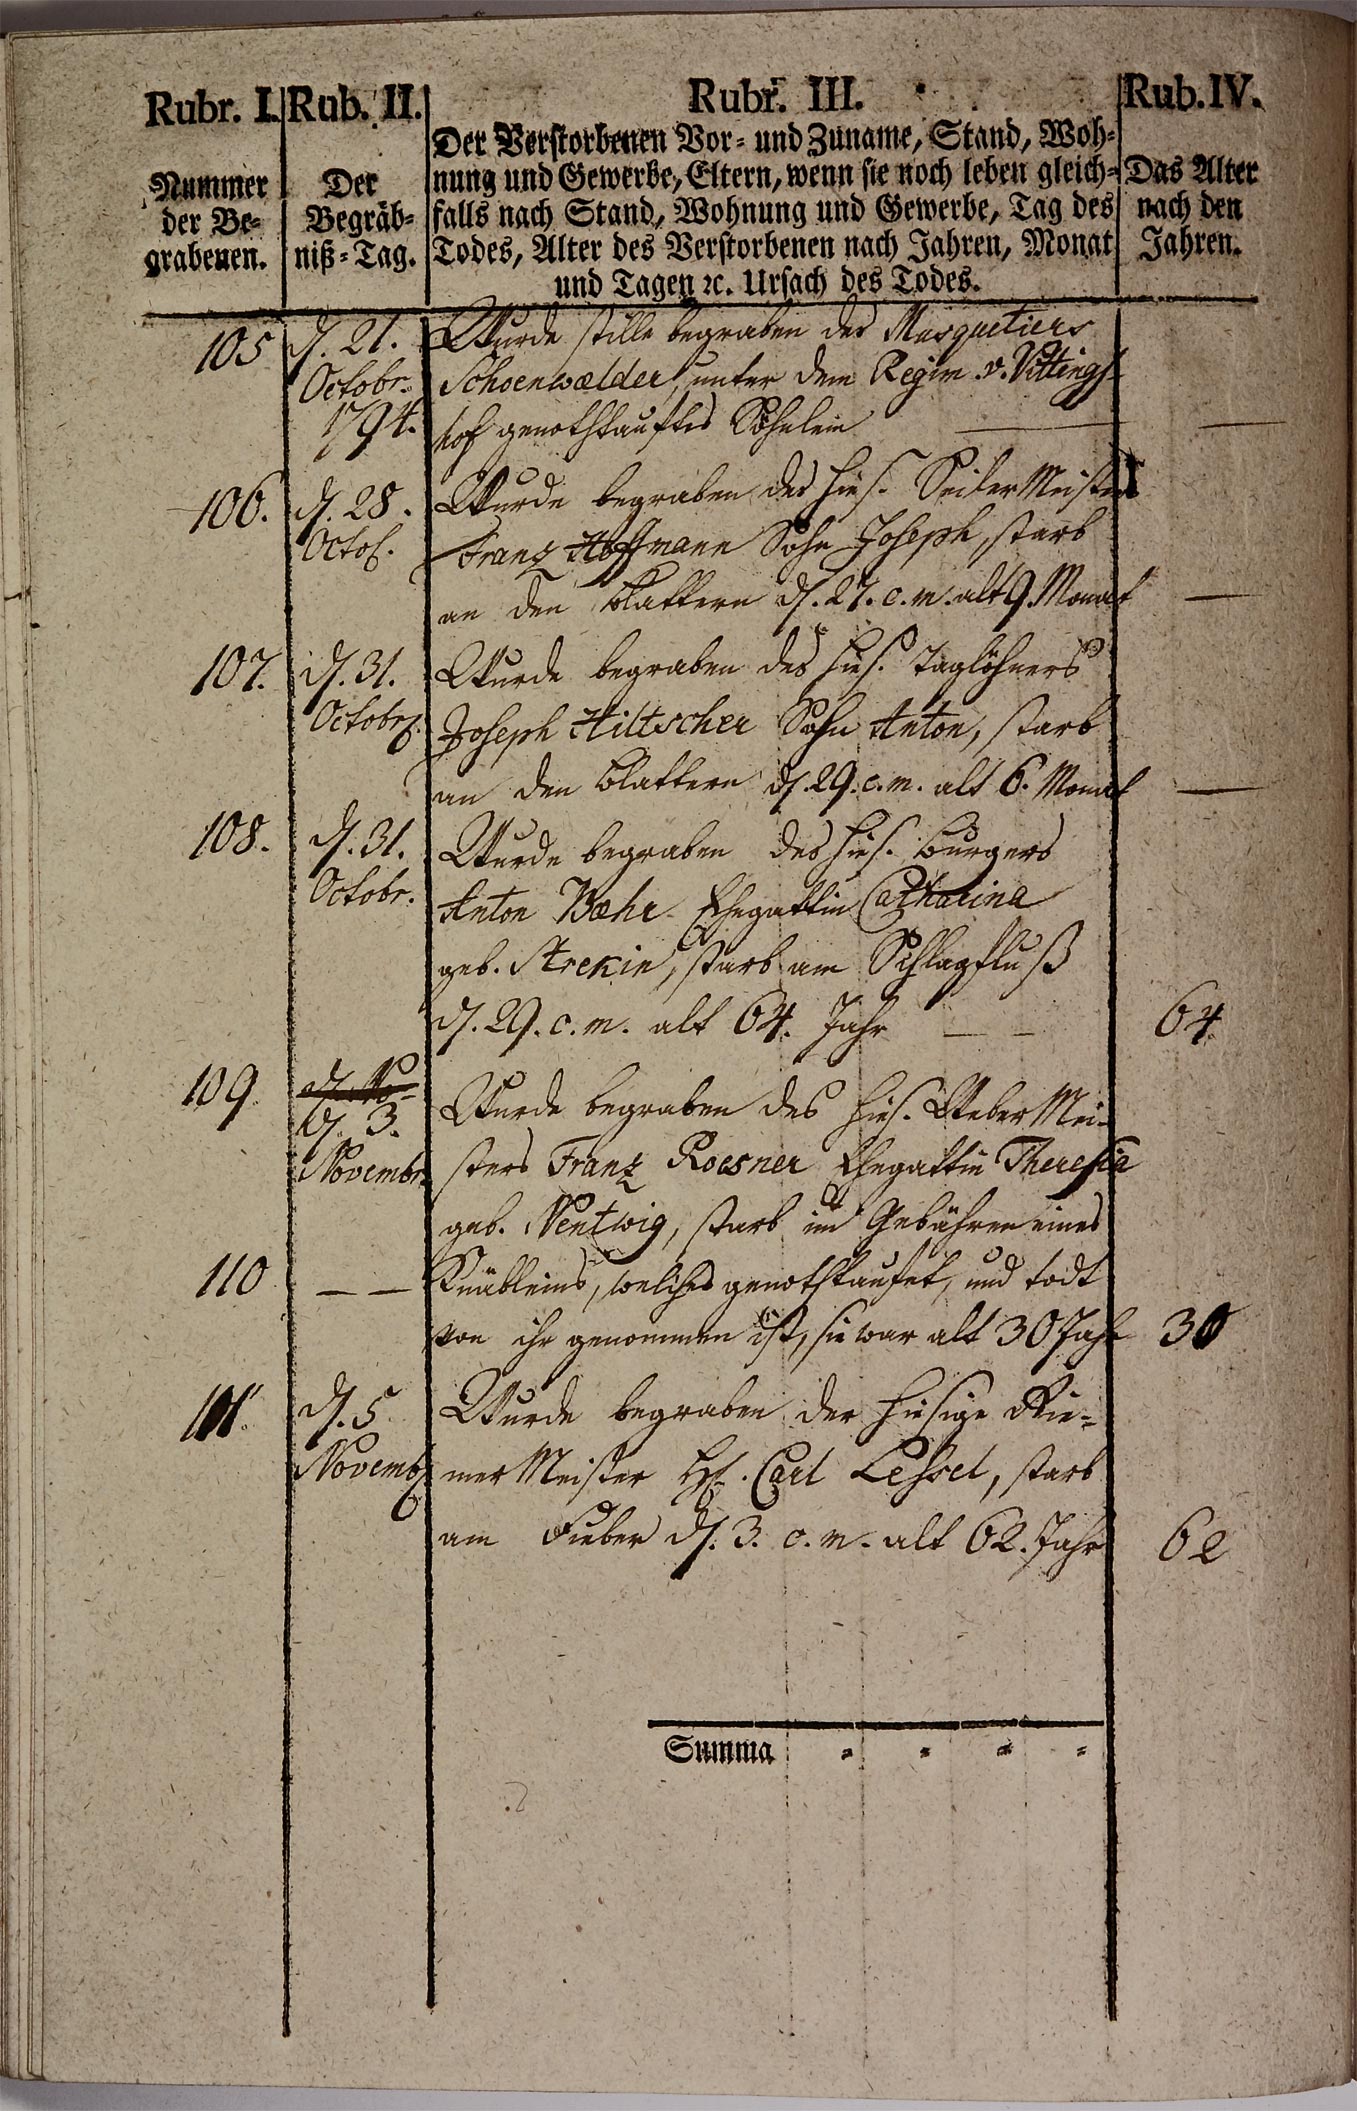 Rubr. I. Rub. II. Rubr. III. Rub. IV.
Nummer der Be-
grabenen.
Der
Begräb-
niß-Tag.
Der Verstorbenen Vor- und Zuname, Stand, Woh-
nung und Gewerbe, Eltern, wenn sie noch leben gleich-
falls nach Stand, Wohnung und Gewerbe, Tag des
Todes, Alter des Verstorbenen nach Jahren, Monat
und Tagen ꝛc. Ursach des Todes.
Das Alter
nach den
Jahren.
105 d. 21. Wurde stille begraben des Musquetiers
Octobr. Schoenwælder, unter dem Regim. v. Vittings-
1794. hof genothtauftes Söhnlein —
106. d. 28. Wurde begraben des hies. Seiler Meisters
Octob. Franz Hoffmann Sohn Joseph, starb
an den Blattern d. 27. c. m. alt 9. Monat —
107. d. 31. Wurde begraben des hies. Taglöhners
Octobr. Joseph Hiltscher Sohn Anton, starb
an den Blattern d. 29. c. m. alt 6. Monat —
108. d. 31. Wurde begraben des hies. Bürgers
Octobr. Anton Bæhr Ehegattin Catharina
geb. Strekin, starb am Schlagfluß
d. 29. c. m. alt 64. Jahr — — 64
109. d. No-
d. 3. Wurde begraben des hies. Weber Mei-
Novembr. sters Franz Roesner Ehegattin Theresia
geb. Nentwig, starb im Gebähren eines
110 — — Knäbleins, welches genothtaufet, und todt
von ihr genommen ist, sie war alt 30 Jahr 30
111. d. 5 Wurde begraben der hiesige Rie-
Novemb. mer Meister H. Carl Lessel, starb
am Fieber d. 3. c. m. alt 62. Jahr 62
Summa